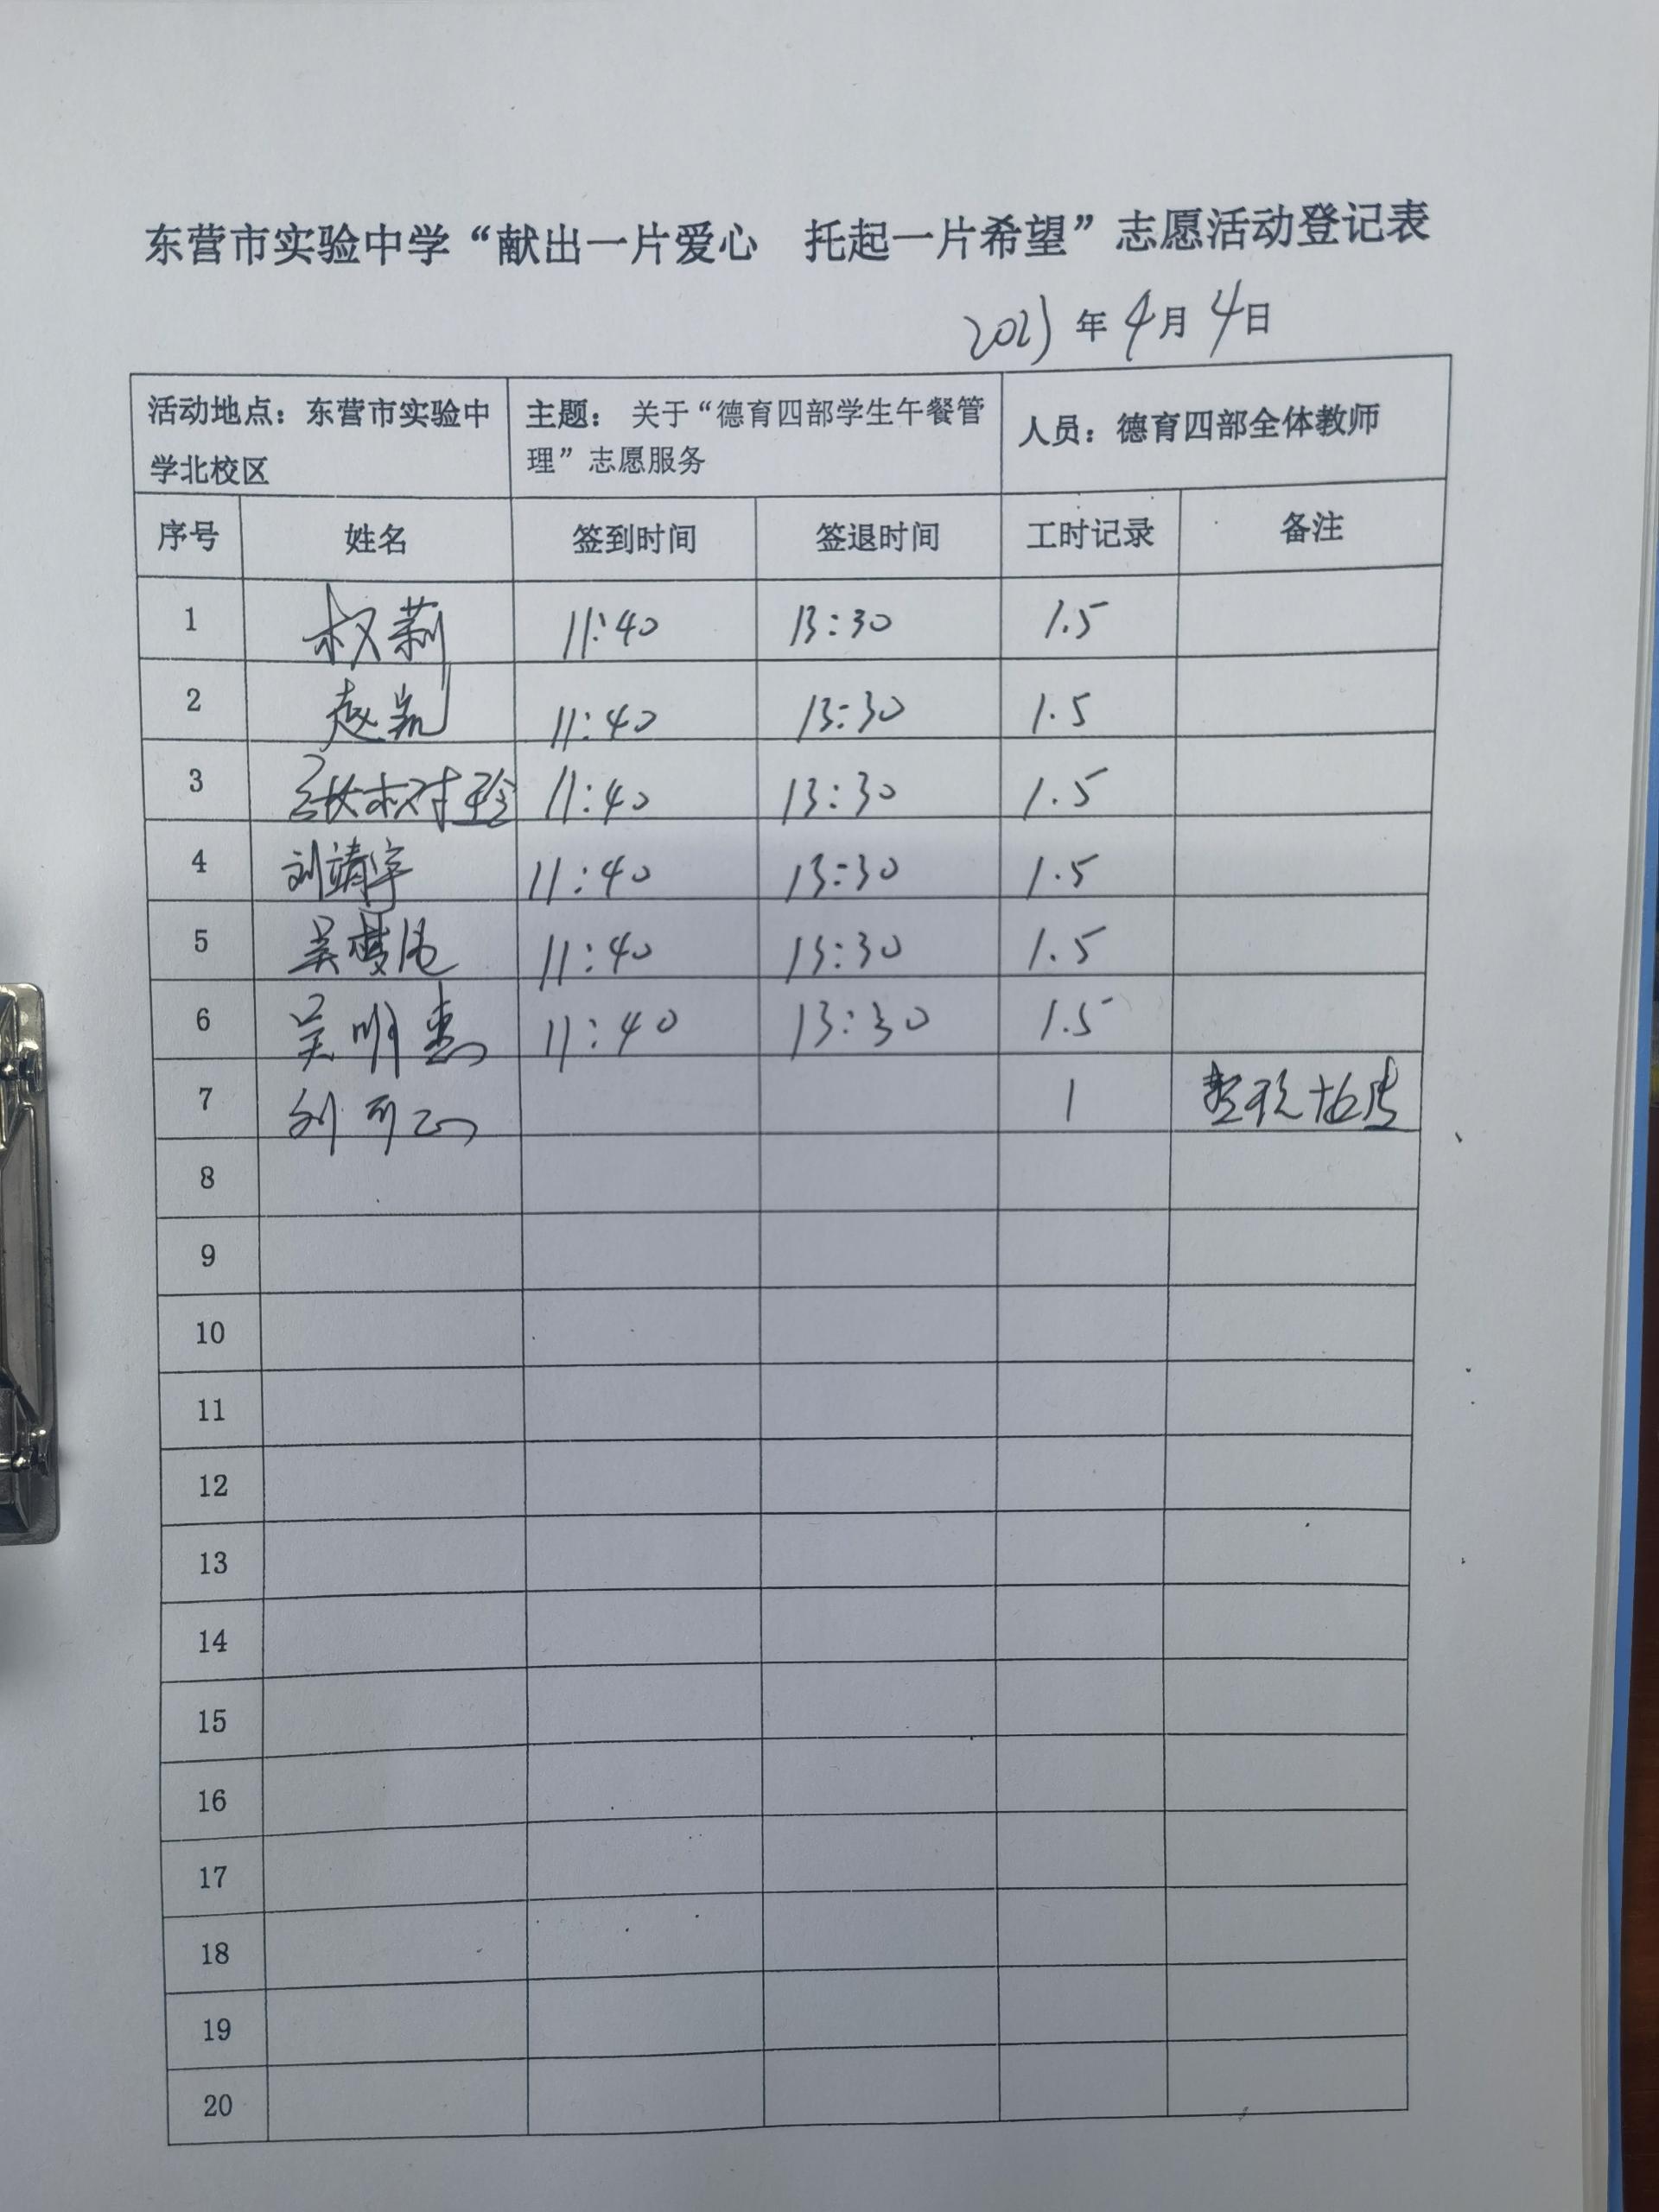 东营市实验中学“献出一片爱心 托起一片希望”志愿活动登记表
2023年4月4日
活动地点：东营市实验中学北校区 主题： 关于“德育四部学生午餐管理”志愿服务 人员：德育四部全体教师
序号 姓名 签到时间 签退时间 工时记录 备注
1 权莉 11:40 13:30 1.5
2 赵凯 11:40 13:30 1.5
3 11:40 13:30 1.5
4 刘靖宇 11:40 13:30 1.5
5 吴梦 11:40 13:30 1.5
6 吴明 11:40 13:30 1.5
7 刘 1
8
9
10
11
12
13
14
15
16
17
18
19
20